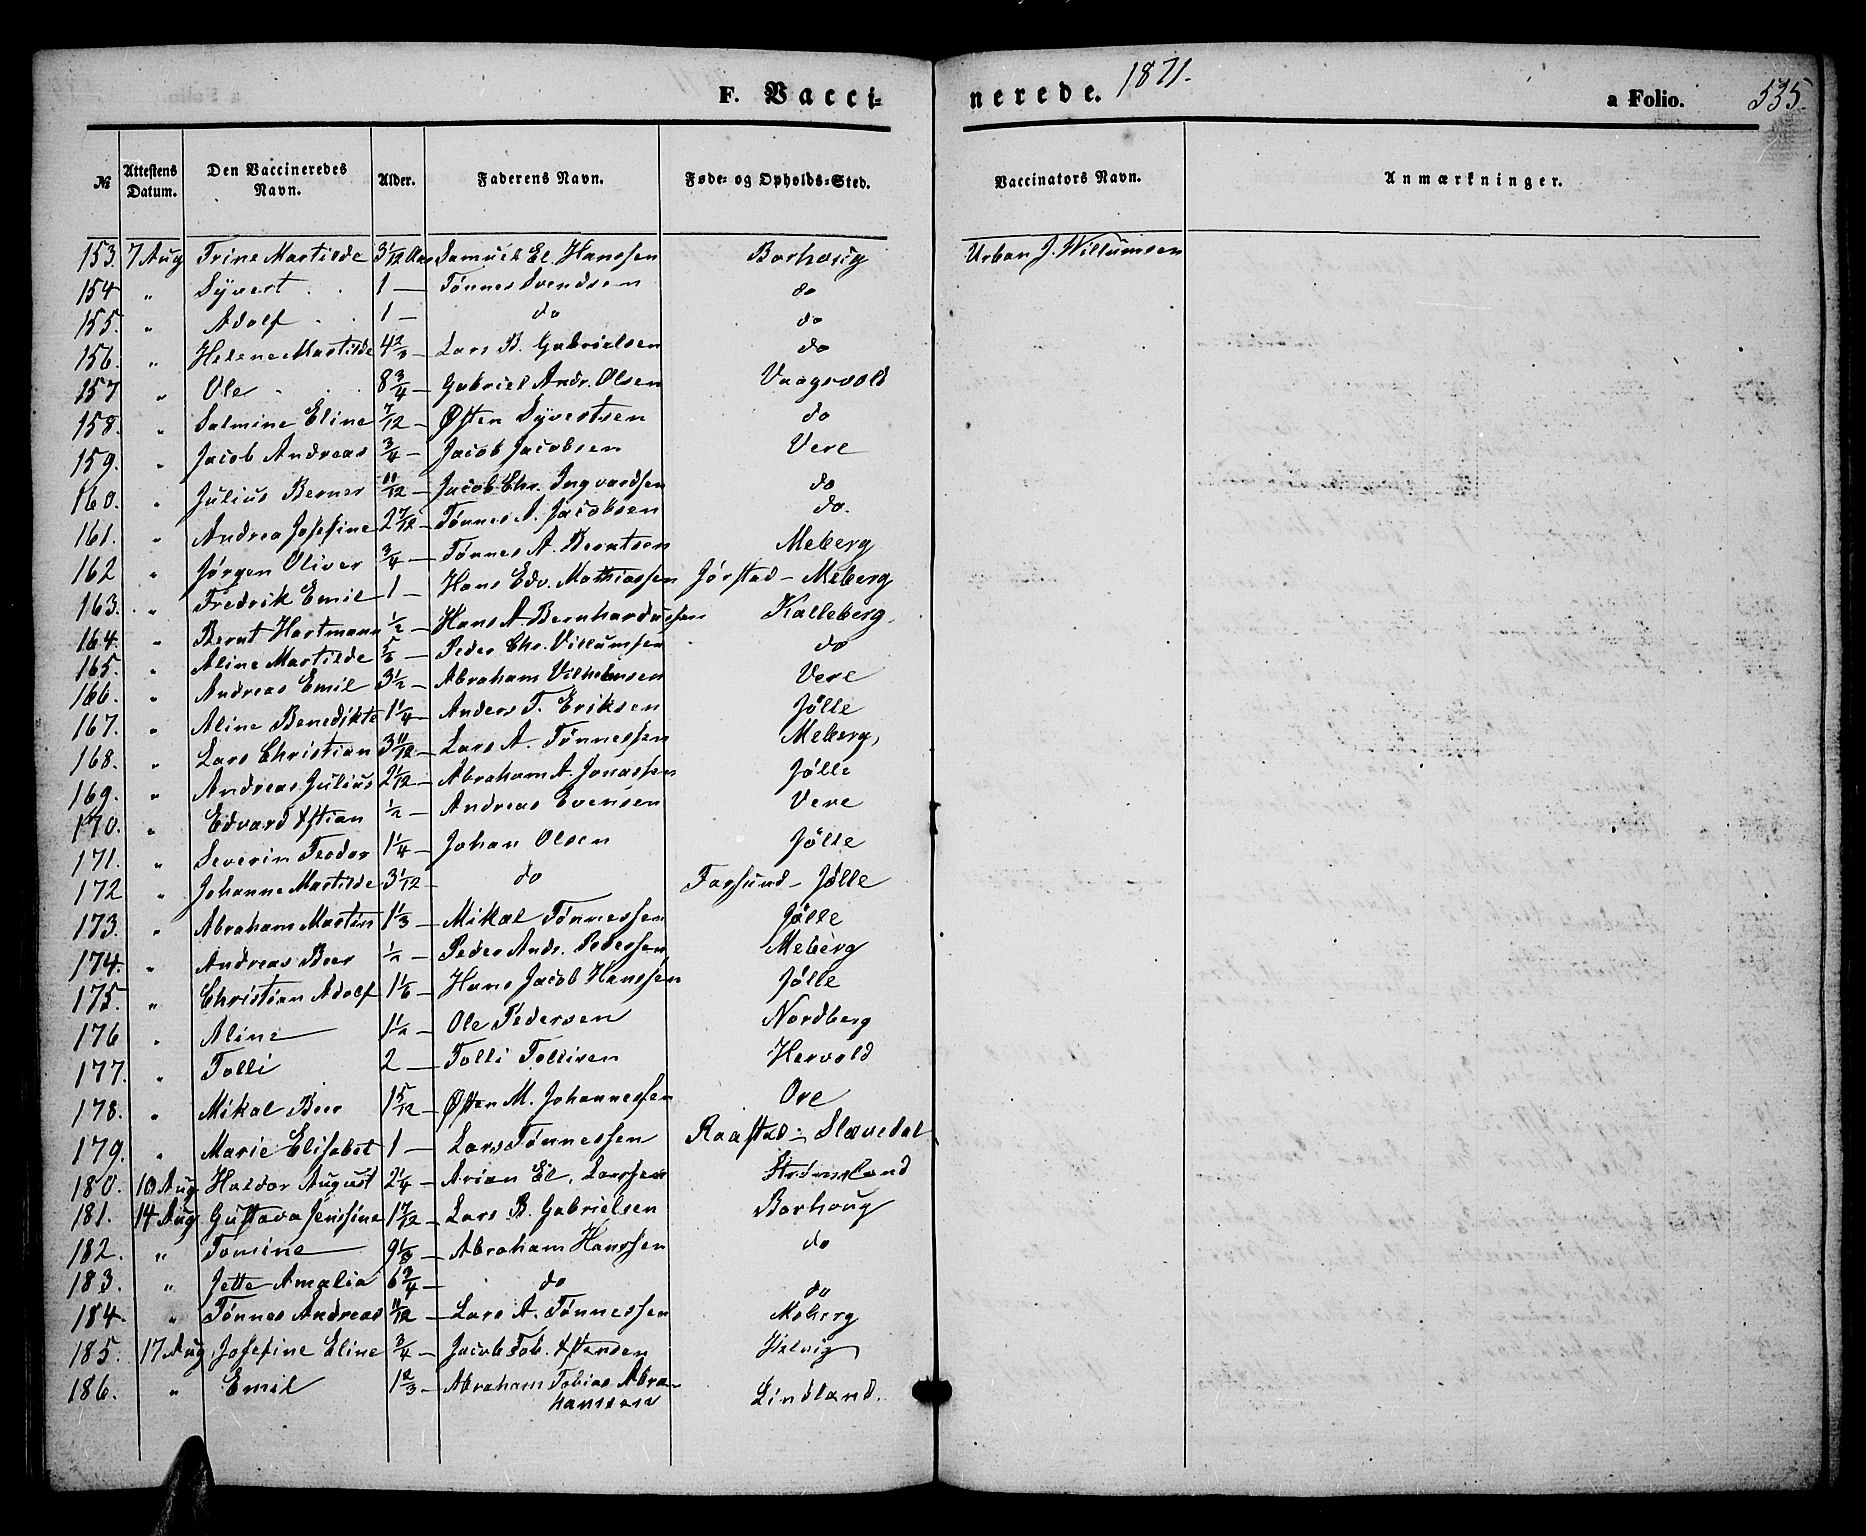 F. Vaccinerede. 1871. a Folio. 535.
№ Attestens Datum. Den Vaccineredes Navn. Alder. Faderens Navn. Føde- og Opholds-Sted. Vaccinators Navn. Anmærkninger.
153. 7 Aug Trine Martilde 3 1/12 Aar Samuel El. Hanssen Borhoug Urban J. Willumsen
154 " Syvert 1 — Tønnes Svendsen do
155. " Adolf 1 — do do
156. " Helene Martilde 4 2/3 — Lars B. Gabrielsen do
157 " Ole 8 3/4 — Gabriel Andr. Olsen Vaagsvold
158. " Salmine Eline 7/12 — Østen Syvertsen do
159. " Jacob Andreas 3/4 — Jacob Jacobsen Vere
160. " Julius Berner 11/12 — Jacob Chr. Ingvardsen do
161. " Andrea Josefine 2 7/12 — Tønnes A. Jacobsen do.
162 " Jørgen Oliver 3/4 — Tønnes A. Berntsen Meberg
163. " Fredrik Emil 1 — Hans Edv. Mathiassen Jørstad - Meberg
164. " Bernt Hartmann 1/2 — Hans A. Bernhardussen Kalleberg
165. " Aline Martilde 5/6 — Peder Chr. Villumsen do
166. " Andreas Emil 3 1/2 — Abraham Vilhelmsen Vere
167. " Aline Benedikte 1 1/4 — Anders T. Eriksen Jølle
168. " Lars Christian 3 11/12 — Lars A. Tønnessen Meberg,
169. " Andreas Julius 2 1/12 — Abraham A. Jonassen Jølle
170. " Edvard Xstian 1/2 — Andreas Evensen Vere
171. " Severin Teodor 1 1/4 — Johan Olsen Jølle
172 " Johanne Martilde 3 1/12 — do Farsund - Jølle
173. " Abraham Martin 1 1/3 — Mikal Tønnessen Jølle
174. " Andreas Beer 1/2 — Peder Andr. Pedersen Meberg
175. " Christian Adolf 1 1/6 — Hans Jacob Hanssen Jølle
176 " Aline 1 1/2 — Ole Pedersen Nordberg
177. " Tolli 2 — Tolli Tollisen Hervold
178. " Mikal Beer 1 5/12 — Østen M. Johannessen Ore
179. " Marie Elisabet 1 — Lars Tønnessen Raastad - Slævedal
180. 10 Aug Haldor August 2 1/4 — Arian El. Larssen Strømsland
181. 14 Aug Gustava Jensine 1 7/12 — Lars B. Gabrielsen Borhoug
182. " Tomine 9 1/3 — Abraham Hanssen do
183. " Jette Amalia 6 3/4 — do do
184. " Tønnes Andreas 11/12 — Lars A. Tønnessen Meberg
185. 17 Aug Josefine Eline 3/4 — Jacob Tob. Xstensen Helvig
186. " Emil 1 2/3 — Abraham Tobias Abra-
hamsen Lindland.